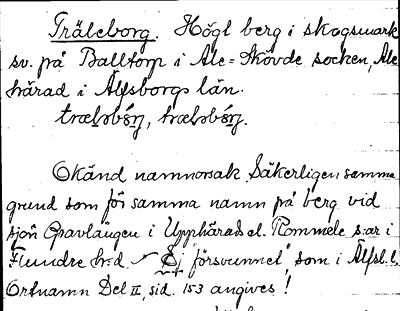 Träleborg. Högt berg i skogsmark
sv. på Balltorp i Ale=Skövde socken, Ale
härad i Älfsborgs län.
Okänd namnorsak. Säkerligen samma
grund som för samma namn på berg vid
sjön Gravlången i Upphärads el. Rommele s:ar i
Flundre h:d. – Ej "försvunnet", som i Älfsb. l.
Ortnamn Del II, sid. 153 angives!